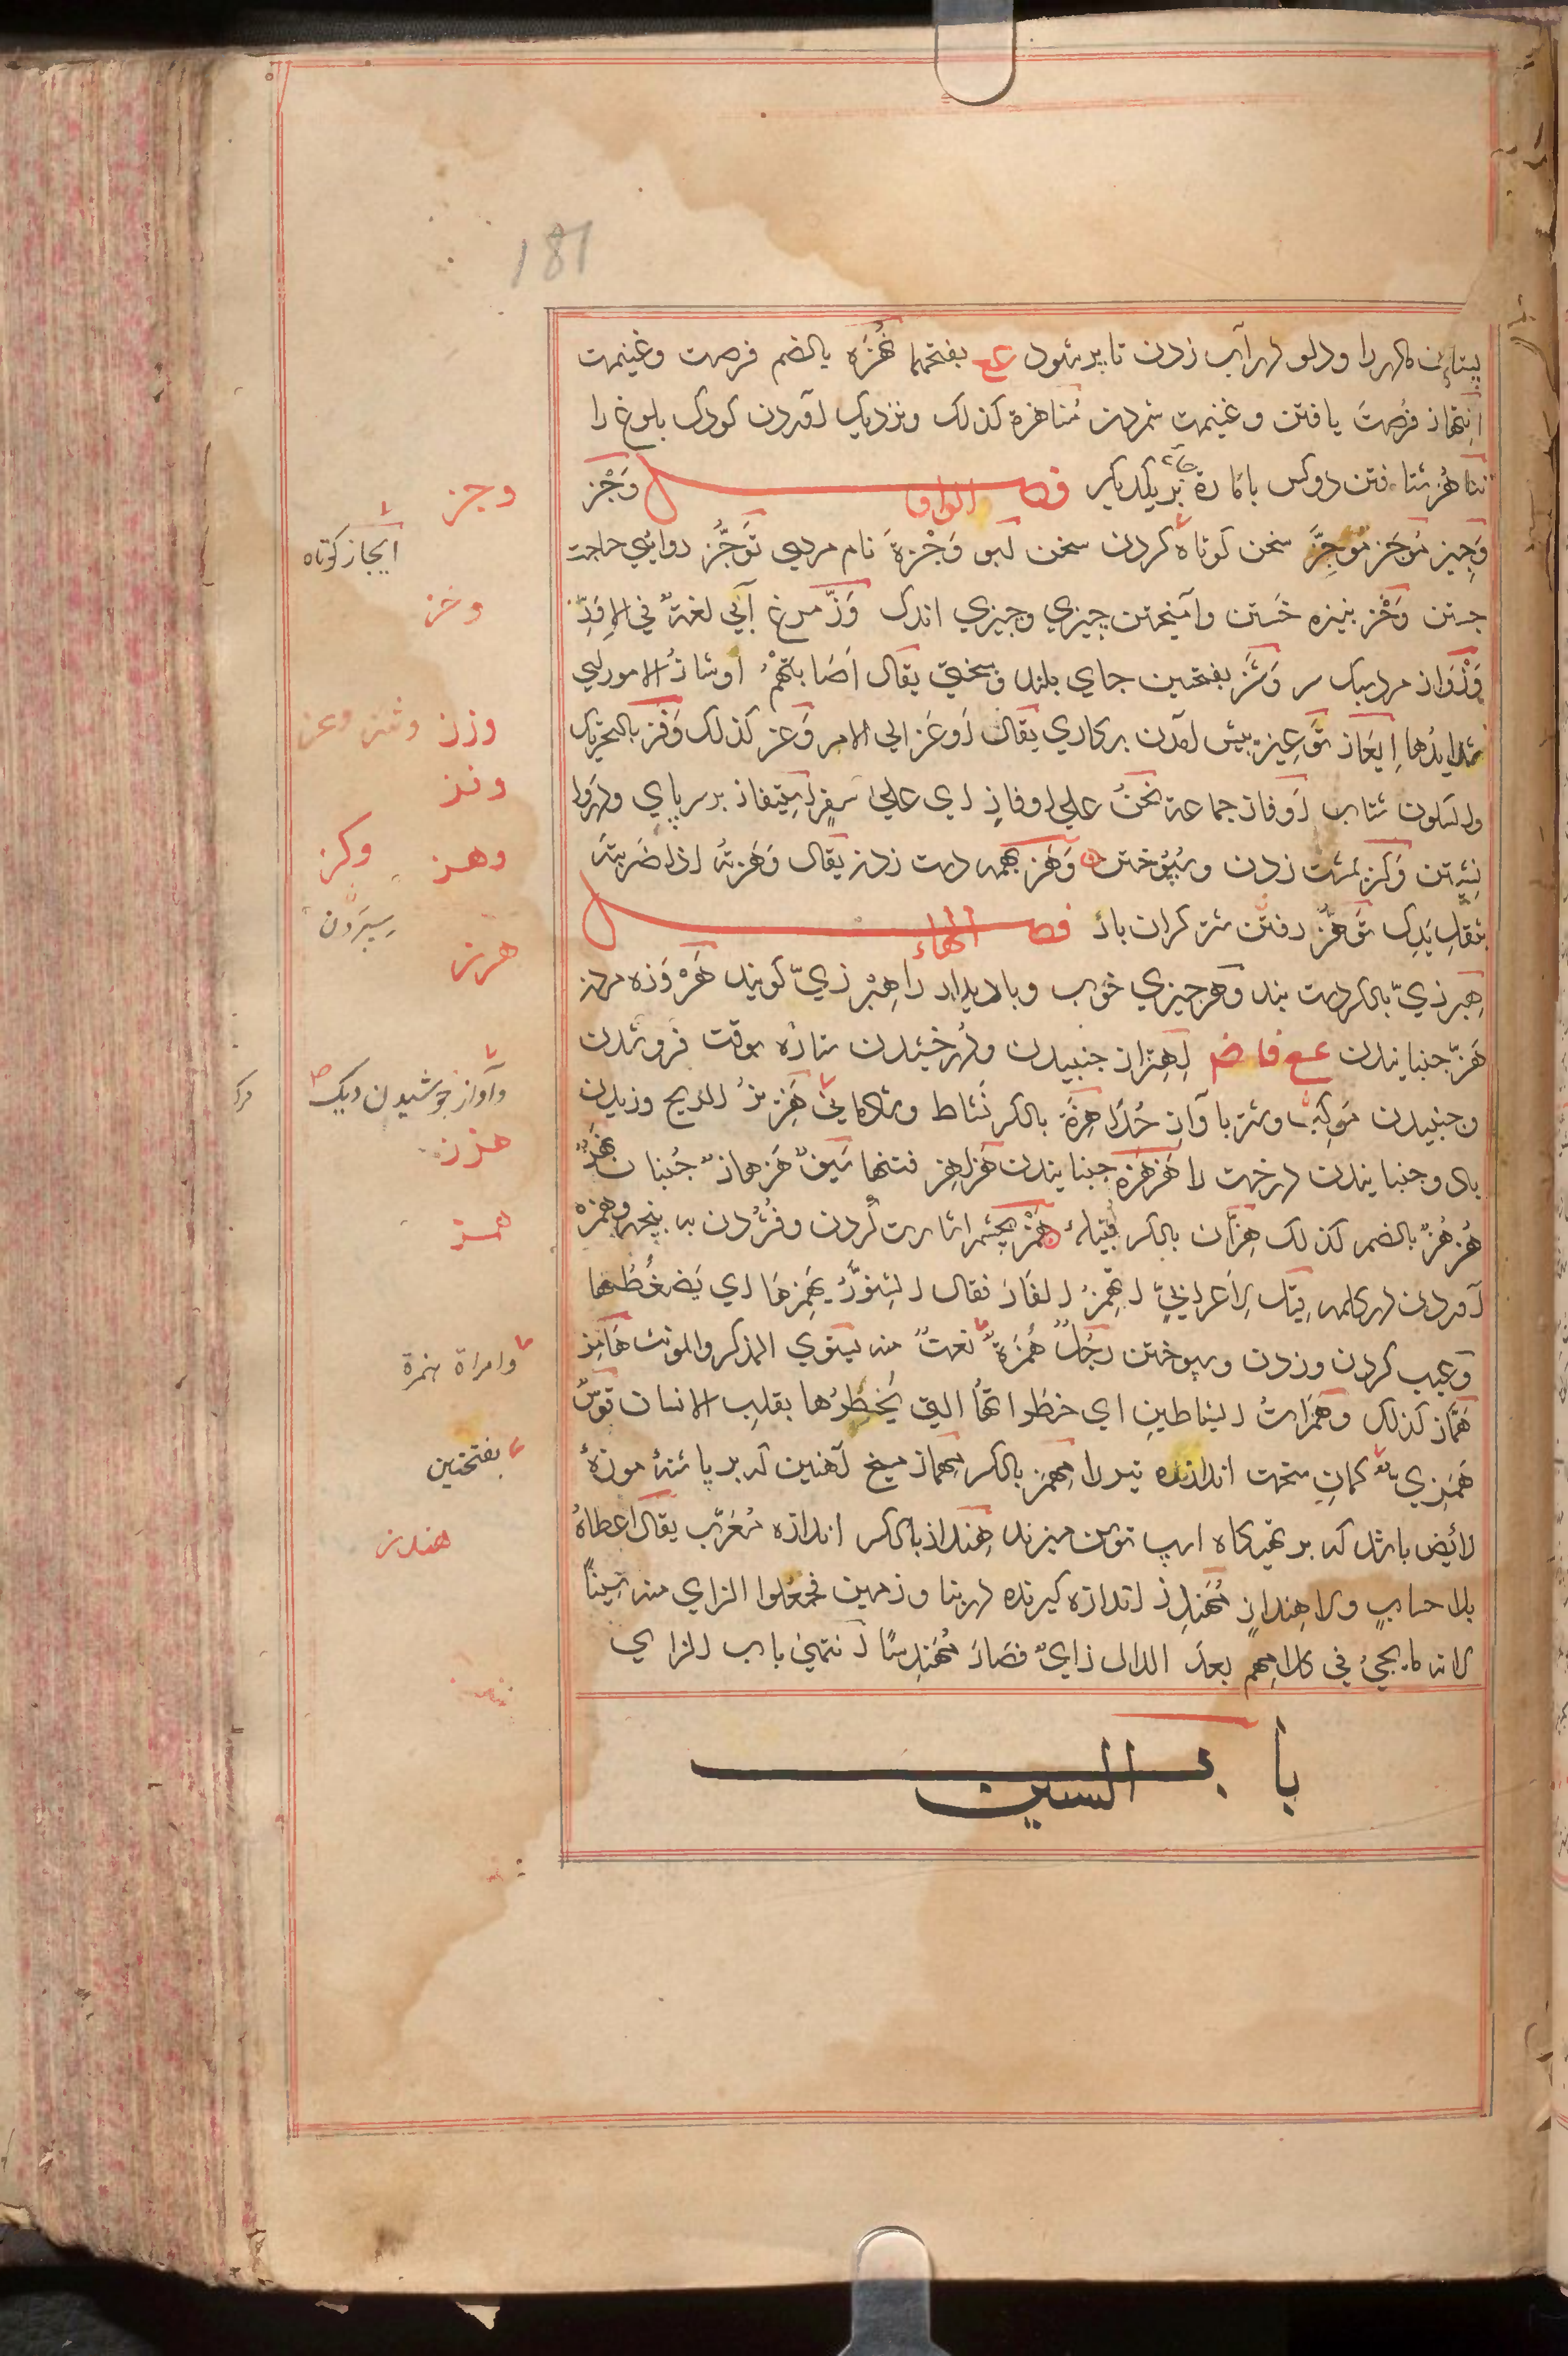 181
پستان مادر را و دلو در آب زدن تا پر شود ع بفتحهما نُهْزَه بالضم فرصت و غنیمت
اِنتهاز فرصت یافتن و غنیمت شمردن مُناهزة کذلک و نزدیک آمدن کودک بلوغ را
تناهُز شتافتن دو کس بامارة بر یکدیگر فصل الواو وَجْز
وَجِیز مُوجَز مُوجِز سخن کوتاه کردن سخن وَجْزَة نام مردی تَوَجُّز روایی حاجت
جستن وَخْز بنیزه خَستن و آمیختن چیزی و چیزی اندک وَزّ مرغ آبی لغةٌ فی الاِوَزّ
وَزْوَاز مرد سبک سر وَشَز بفتحتین جای بلند و سختی یقال اَصَابَتْهُمْ اوشازُ الامور ای
شدایدُها اِیعَاز تَوعِیز پیش آمدن بر کاری یقال اَوعَز الی الامر وَعز کذلک وَفَز بالتحریک
شتاب اَوفاز جماعة نَحنُ علی اوفازٍ ای علی سفرٍ اِستیفاز بر سر پای
نشستن وَکْز مُشت زدن و سُپُوختن وَهْز همه دست زدن یقال وَهَزتُه اذا ضَربتَه
بثقلِ یَدِک تَوَهُّز رفتن شتر کران بار فصل الهاء
هِبرِزیّ بالکر دست بند و هر چیزی خوب و با دیدار را هِبْرِزیّ کویند هَرْوَزه مردن
هَزّ جنبانیدن ع ف ا ض اِهتِزاز جنبیدن و درخشیدن ستاره بوقت فرو شدن
و جنبیدن مَوکِب و شتر با آوازِ حُدا هِزَّة بالکر نَشاط و شادمانی هَزِیزُ الریح وزیدن
باد و جنبانیدن درخت را هَزهَزَة جنبانیدن هَزاهِز فتنها سَیفٌ هَزهازٌ جُنبان
هُزهُزٌ بالضم کذلک هِزّان بالکر قبیلهٔ هَمْز بچشم اشارت کردن و فُشُردن به پنجه و همزه
آوردن در کلمه قیل لِاَعرابیٍّ اَتَهمِزُ الفَارَ فقال السِنَّورُ یَهمِزُهَا ای یَضغُطُها
و عیب کردن و زدن و سپوختن رَجُلٌ هُمَزَةٌ نعتٌ منه یستوی المذکر والمونث هَامِز
هَمَّاز کذلک و هَمَزاتُ الشیاطینِ ای خطراتها التی یُخطِرُها بقلبِ الانسان قوسٌ
هَمَزی کمانِ سخت اندازنده تیر را مِهمَز بالکر مِهماز میخ آهنین که بر پاشنهٔ موزهٔ
رایض باشد که بر تهیگاه اسپ توسن میزند هِنداز بالکر اندازه مُعَرَّب یقال اعطاهُ
بلا حسابٍ ولا هِندازٍ مُهَندِز اندازه گیرنده در بنا و زمین فجعلوا الزای منه سِیناً
لانه لا یجیُٔ فی کلامِهم بعدَ الدال زایٌ فصَارَ مُهَندِسًا انتهی باب الزای
باب السین
وجز
ایجاز کوتاه
وخز
وزز وشز وعز
وفز
وهز وکز
سپردن
هرز
وآواز جوشیدن دیک صح
هزز
همز
وامراة همزة
بفتحتین
هندز